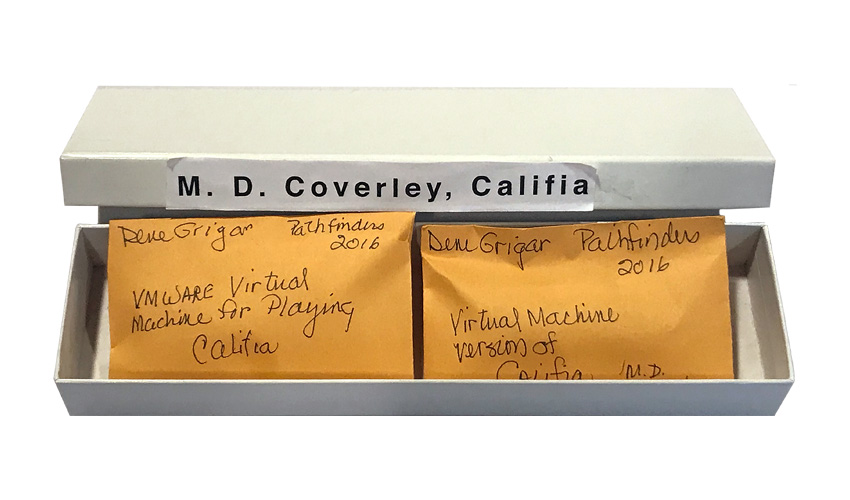 M. D. Coverley, Califia
Dene Grigar Pathfinders
2016
VMWARE Virtual
Machine for Playing
Califia
Dene Grigar Pathfinders
2016
Virtual Machine
version of
Califia, M.D.